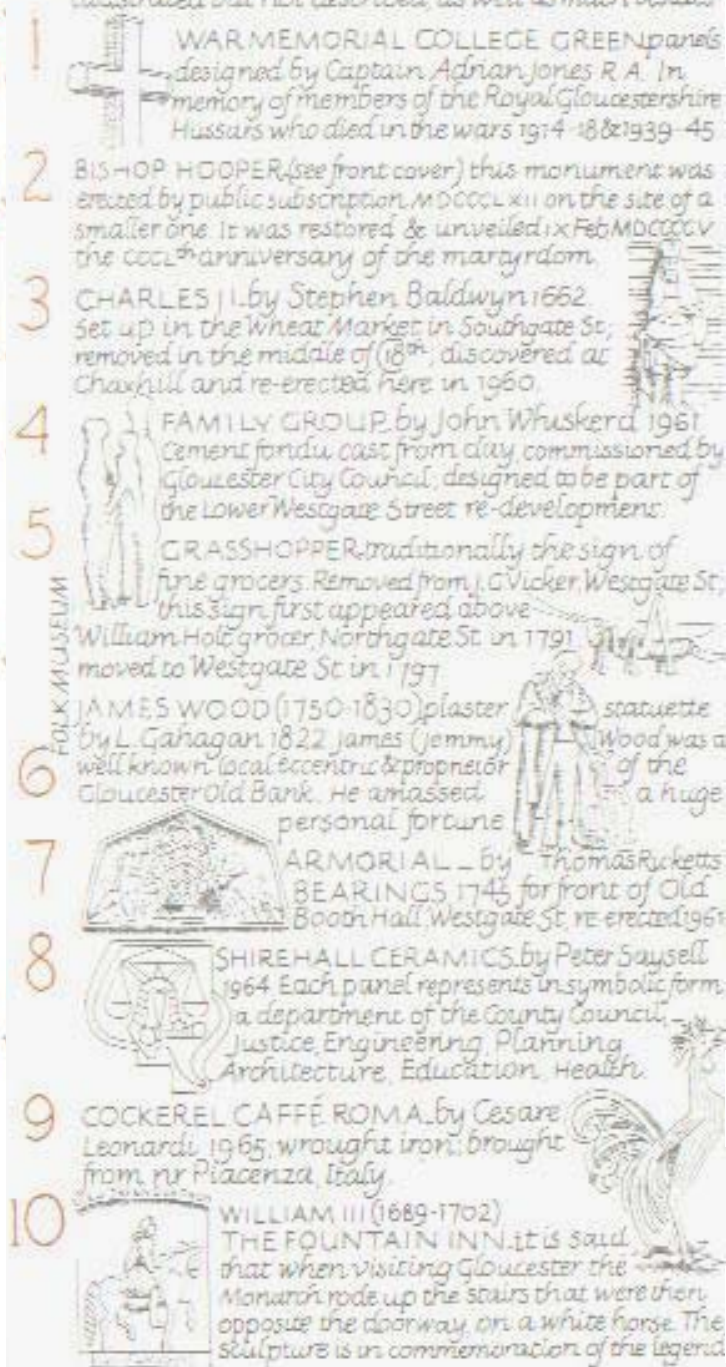 illustrated but not described, as well as much
1
WAR MEMORIAL COLLEGE GREEN panels
designed by Captain Adrian Jones R A. In
memory of members of the Royal Gloucestershire
Hussars who died in the wars 1914-18 & 1939-45
2
BISHOP HOOPER (see front cover) this monument was
erected by public subscription MDCCCLXII on the site of a
smaller one. It was restored & unveiled ix Feb MDCCCCV
the CCCLth anniversary of the martyrdom.
3
CHARLES II. by Stephen Baldwyn 1662.
Set up in the Wheat Market in Southgate St,
removed in the middle of (18th, discovered at
Chaxhill and re-erected here in 1960.
4
FAMILY GROUP by John Whuskerd 1961
Cement fondu cast from clay commissioned by
Gloucester City Council, designed to be part of
the Lower Westgate Street re-development.
5
GRASSHOPPER. traditionally the sign of
fine grocers. Removed from J. C Vicker, Westgate St,
this sign first appeared above
William Holt grocer, Northgate St. in 1791
moved to Westgate St in 1797
FOLK MUSEUM
6
JAMES WOOD (1750-1830) plaster statuette
by L. Gahagan 1822 James (Jemmy) Wood was a
well known local eccentric & proprietor of the
Gloucester Old Bank. He amassed a huge
personal fortune
7
ARMORIAL _ by Thomas Ricketts
BEARINGS 1745 for front of Old
Booth Hall, Westgate St, re erected 196
8
SHIREHALL CERAMICS. by Peter Saysell
1964 Each panel represents in symbolic form
a department of the County Council,
Justice, Engineering, Planning
Architecture, Education, Health.
9
COCKEREL CAFFÉ ROMA. by Cesare
Leonardi, 1965, wrought iron; brought
from nr Piacenza, Italy.
10
WILLIAM III (1689-1702)
THE FOUNTAIN INN. it is said
that when visiting Gloucester the
Monarch rode up the stairs that were then
opposite the doorway, on a white horse. The
sculpture is in commemoration of the legend